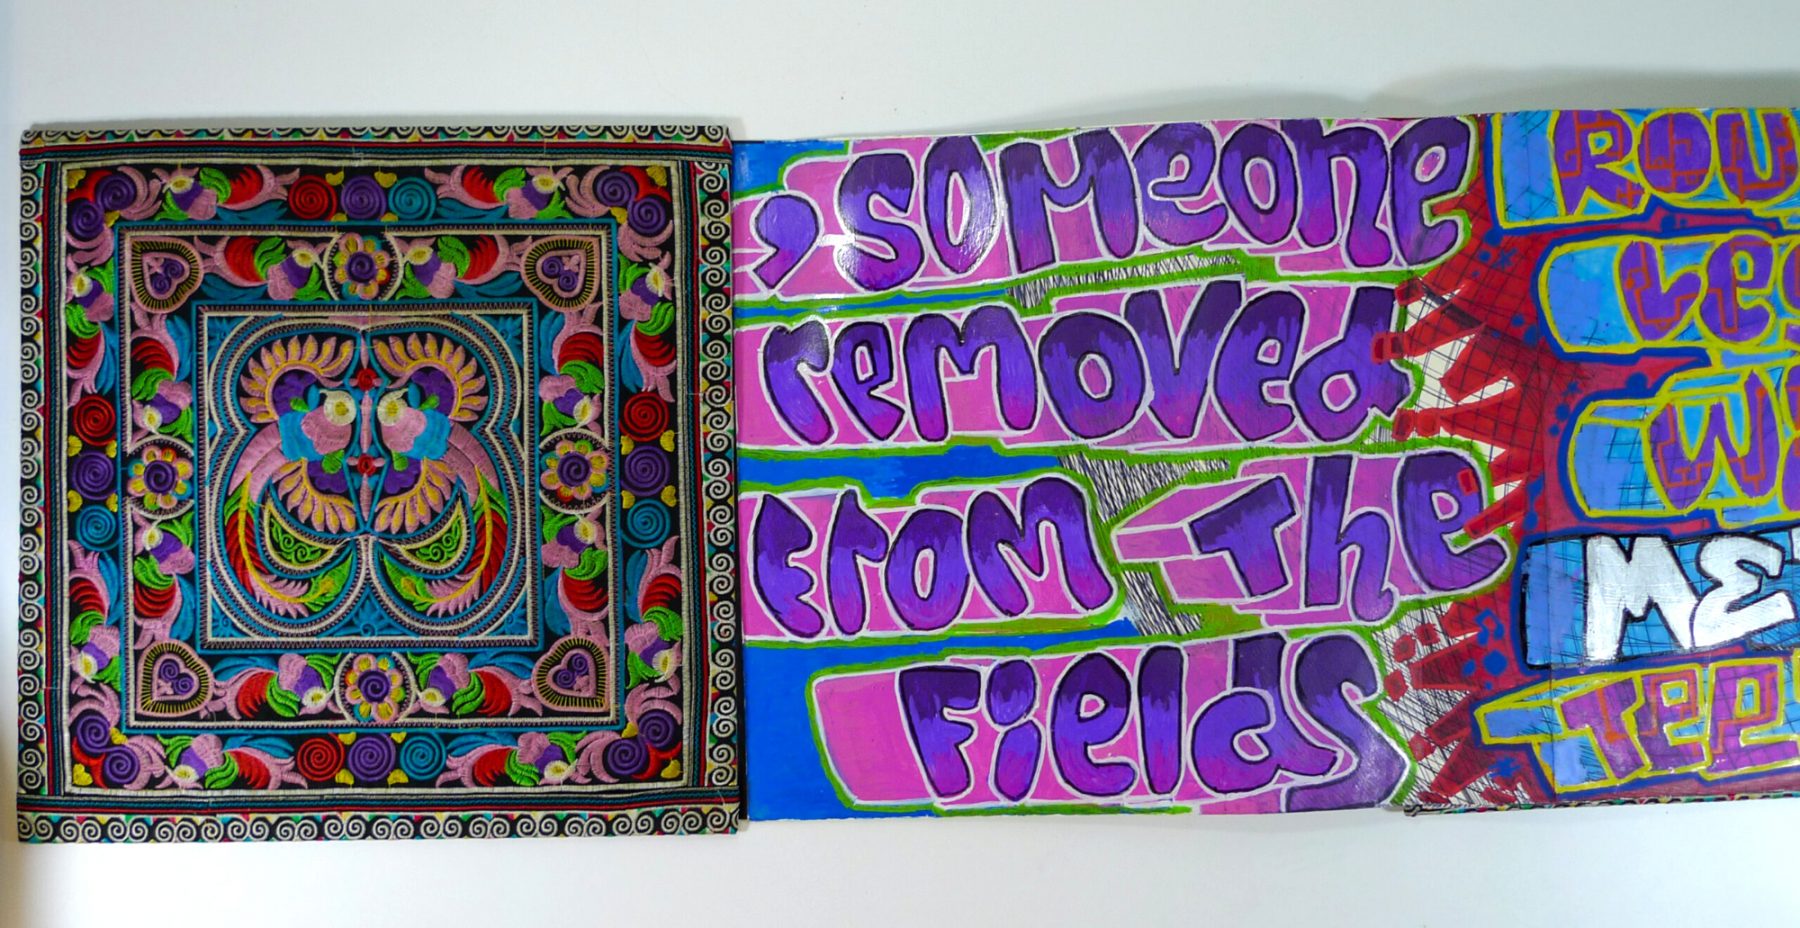 , someone
removed
from the
fields
ROU
Les
ME
TEE